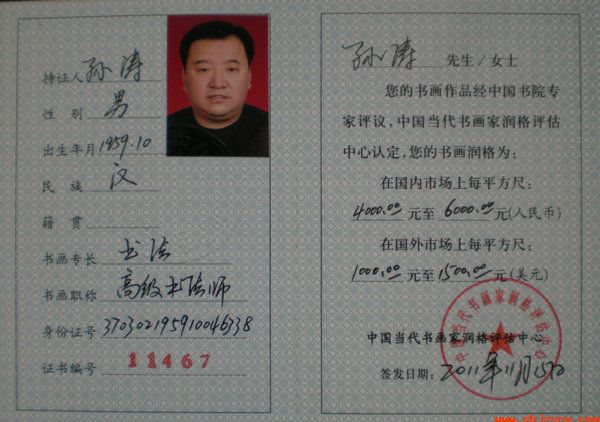 持证人 孙涛
性 别 男
出生年月 1959.10
民 族 汉
籍 贯
书画专长 书法
书画职称 高级书法师
身份证号 370302195910046338
证书编号 11467
孙涛 先生/女士
您的书画作品经中国书院专
家评议,中国当代书画家润格评估
中心认定,您的书画润格为:
在国内市场上每平方尺:
4000.00 元至 6000.00 元(人民币)
在国外市场上每平方尺:
1000.00 元至 1500.00 元(美元)
中国当代书画家润格评估中心
中国当代书画家润格评估中心
签发日期: 2011年11月